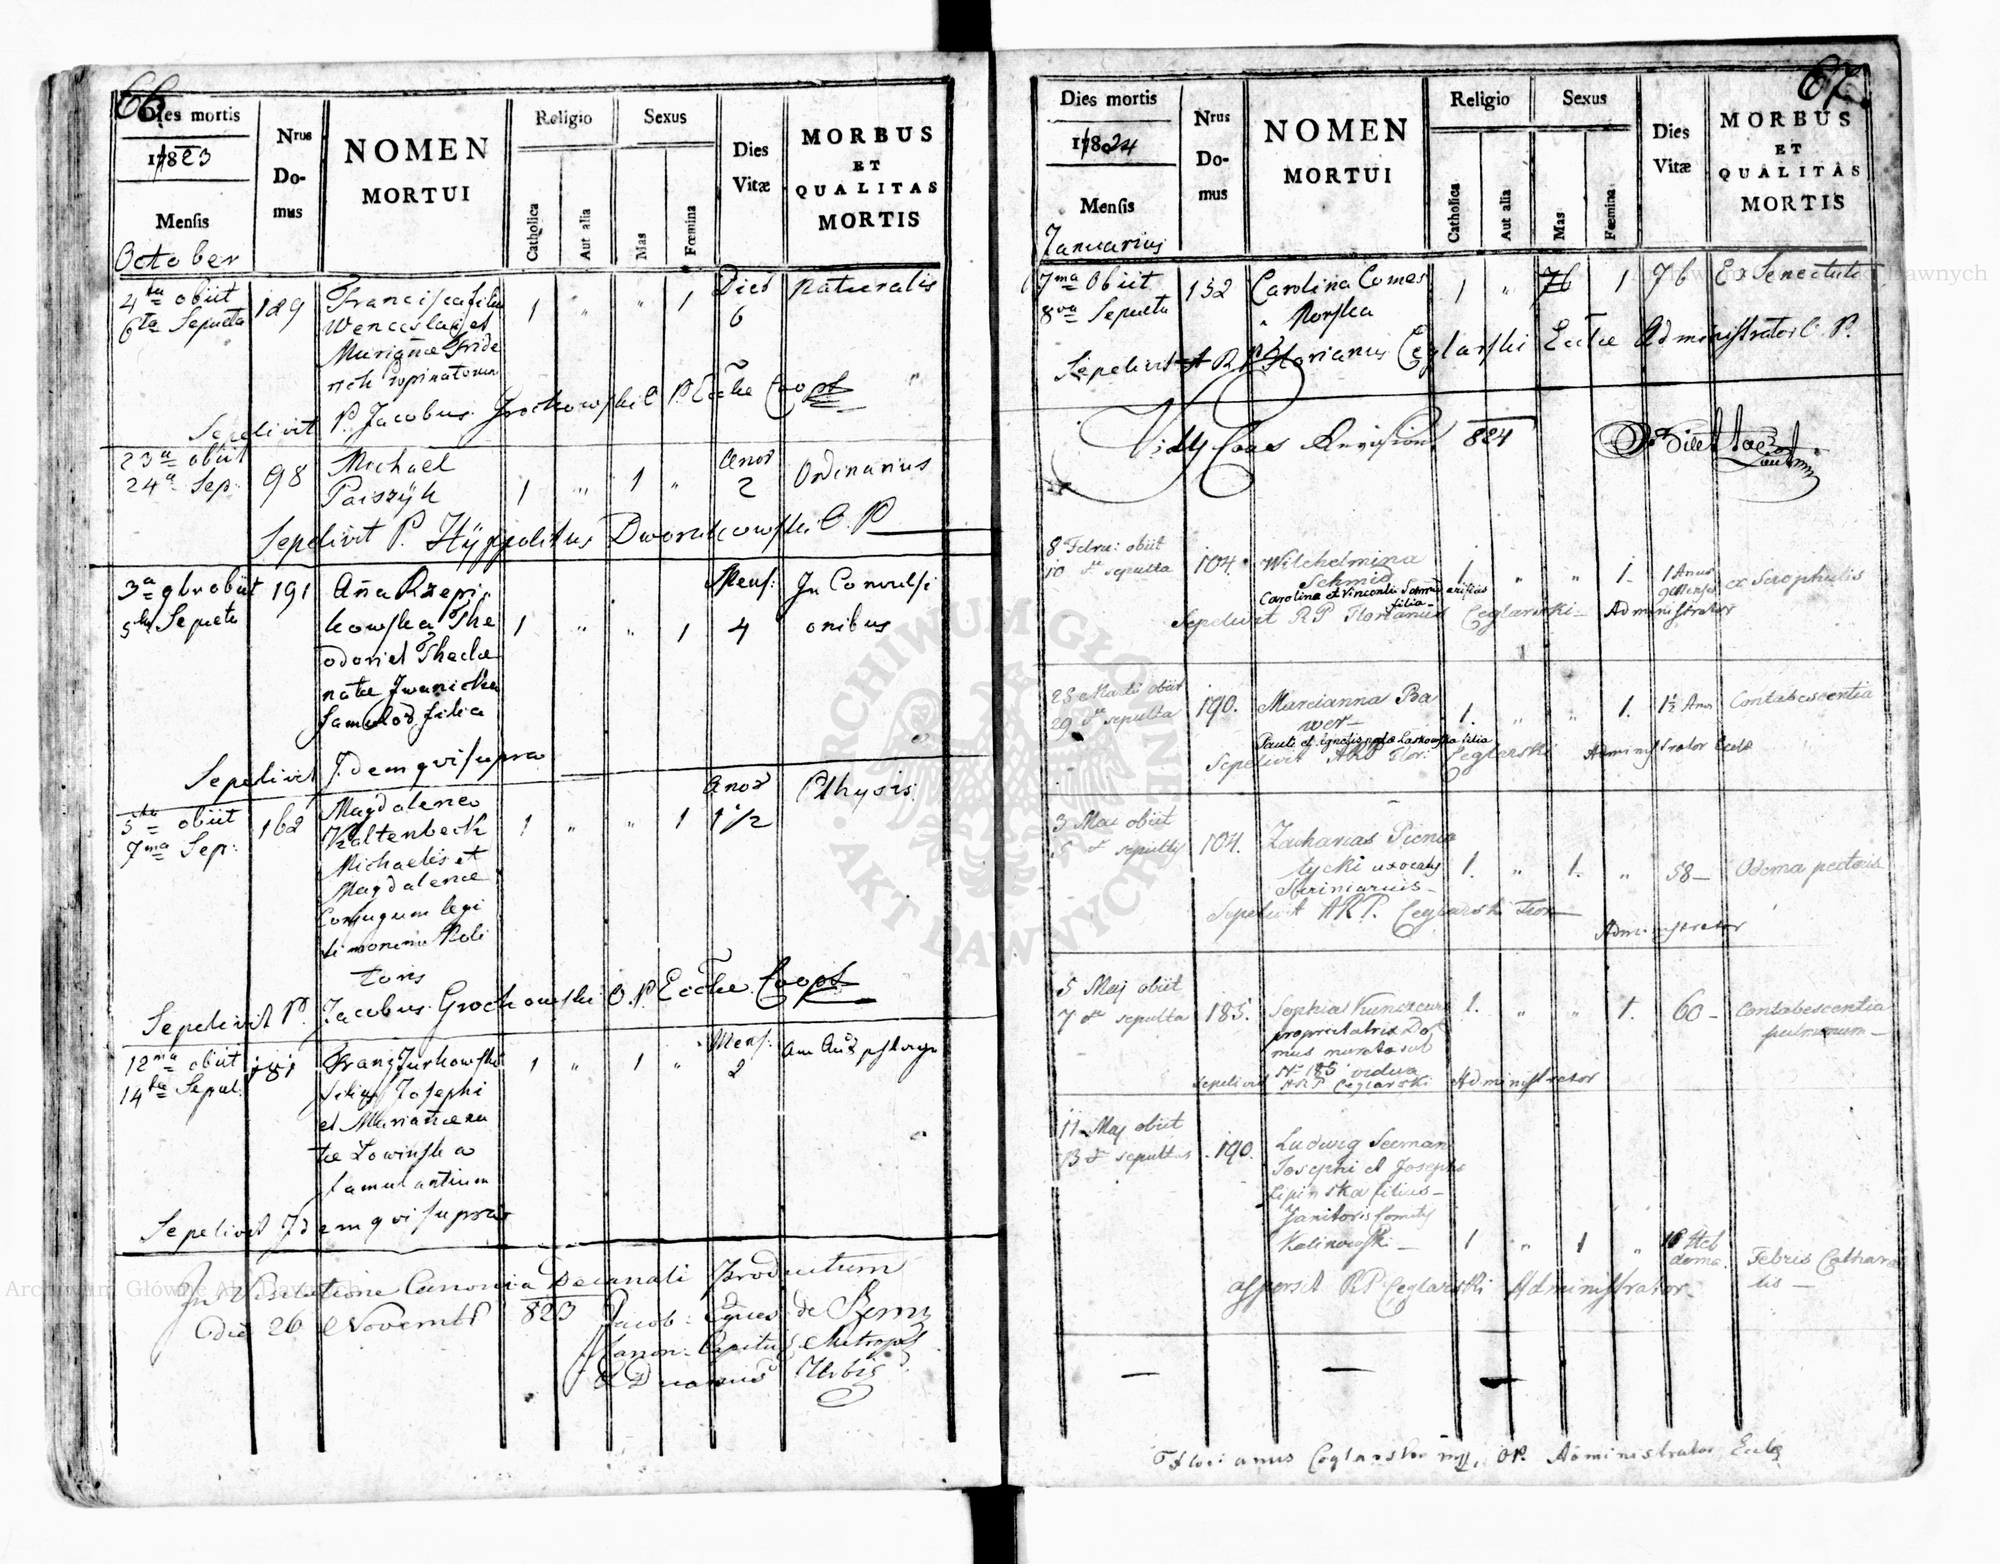 66.
Dies mortis
1823
Mensis
October
Nrus
Do-
mus
NOMEN
MORTUI
Religio
Catholica
Aut alia
Sexus
Mas
Fœmina
Dies
Vitæ
MORBUS
ET
QUALITAS
MORTIS
4ta obiit
6ta Sepulta
129
Francisca filia
Wenceslai et
Marianæ Fride
rich Propinatorum
1 " " 1
Dies
6
naturalis
Sepelivit P. Jacobus Grochowski O. P. Eccliae Coop
23a obiit
24a Sep:
98
Michael
1 " 1 "
Anor
2
Ordinarius
Sepelivit P. Hÿppolitus Dworakowski O. P.
3a 9br obiit
5ta Sepulta
191
Aña Rzepi
kowska The
odori et Theclæ
natæ Iwanicka
famulor filia
1 " " 1
Mens:
4
In Convulsi
onibus
Sepelivit Idem qui supra
5ta obiit
7ma Sep:
162
Magdalena
Kaltenbeck
Michaelis et
Magdalenæ
Conjugum legi
timorum Poli
toris
1 " " 1
Anor
1 1/2
Pthysis
Sepelivit P. Jacobus Grochowski O. P. Eccliae Coop
12ma obiit
14ta Sepul.
181
Franz Jurkowski
filius Josephi
et Marianæ na
tæ Lowinska
famulantium
1 " 1 "
Mens:
2
Sepelivit Idem qui supra
In Visitatione Canonica Decanali Productum
die 26 Novembr 823
Jacob: Eques de
Canon: Capitul: Metropol
Urbis
67.
Dies mortis
1824
Mensis
Januarius
Nrus
Do-
mus
NOMEN
MORTUI
Religio
Catholica
Aut alia
Sexus
Mas
Fœmina
Dies
Vitæ
MORBUS
ET
QUALITAS
MORTIS
7ma Obiit
8va Sepulta
132
Carolina Comes
Morska
1 " 76 1
76
Ex Senectute
Sepelivit A R P Florianus Ceglarski Eccliae Administrator O. P.
Vidi Revisionis 824
8 Febru: obiit
10 do sepulta
104.
Wilchelmina
Schmid
Carolina et Vincentii
filia
1. " " 1.
1 Annor
9 Mensi
ex Scrophulis
Sepelivit RP Florianus Ceglarski Administrator
28 Martii obiit
29 do sepulta
190.
Marcianna Ba
wer
Pauli et Agnetis natæ Laskowska filia
1. " " 1.
1 1/2 Anor
Contabescentia
Sepelivit ARP Flor: Ceglarski Administrator Eccle
3 Maii obiit
5 do sepultus
104.
Zacharias Picnia
tycki uxoratus
1. " 1. "
58
Odema pectoris
Sepelivit ARP. Ceglarski Flor
Administrator
5 Maj obiit
7 do sepulta
185.
Sophia
proprietatrix Do
mus murata sub
Nr 185 vidua
1. " " 1.
60
Contabescentia
pulmonum
Sepelivit ARP Ceglarski Administrator
11 Maj obiit
13 do sepultus
190.
Ludwig Seeman
Josephi et Josepha
Lipinska filius
Janitoris Comitis
Kalinowski
1 " 1 "
Heb
doma.
Febris Catharra
lis
aspersit RP Ceglarski Administrator
Florianus Ceglarski mp. OP. Administrator Eccle
ARCHIWUM GŁÓWNE AKT DAWNYCH
Archiwum Główne Akt Dawnych